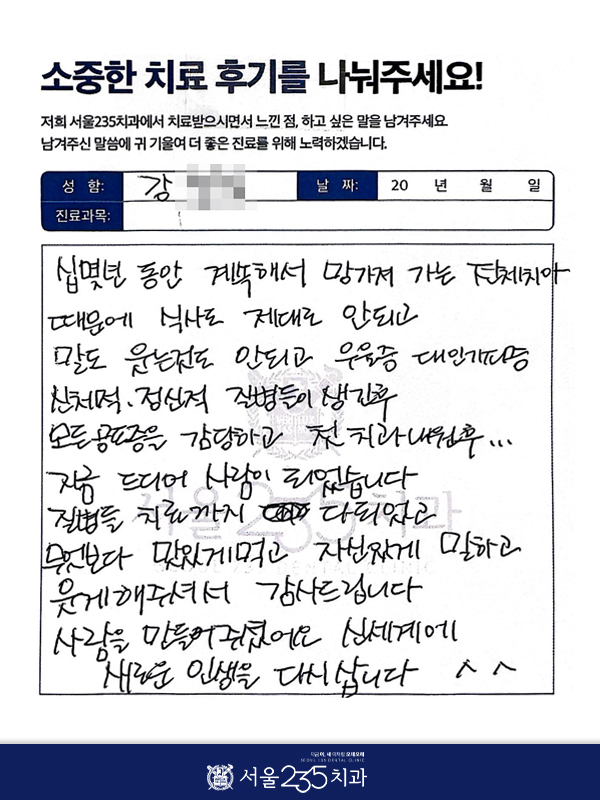 소중한 치료 후기를 나눠주세요!
저희 서울235치과에서 치료받으시면서 느낀 점, 하고 싶은 말을 남겨주세요
남겨주신 말씀에 귀 기울여 더 좋은 진료를 위해 노력하겠습니다.
성 함: 강 날 짜: 20 년 월 일
진료과목:
십몇년 동안 계속해서 망가져 가는 전체치아
때문에 식사도 제대로 안되고
말도 웃는것도 안되고 우울증 대인기피증
신체적.정신적 질병들이 생긴후
모든공포증을 감당하고 첫 치과내원후...
지금 드디어 사람이 되었습니다
질병들 치료까지 다되었고
무엇보다 맛있게먹고 자신있게 말하고
웃게해주셔서 감사드립니다
사람을 만들어주셨어요 신세계에
새로운 인생을 다시삽니다 ^ ^
서울235치과
서울235치과